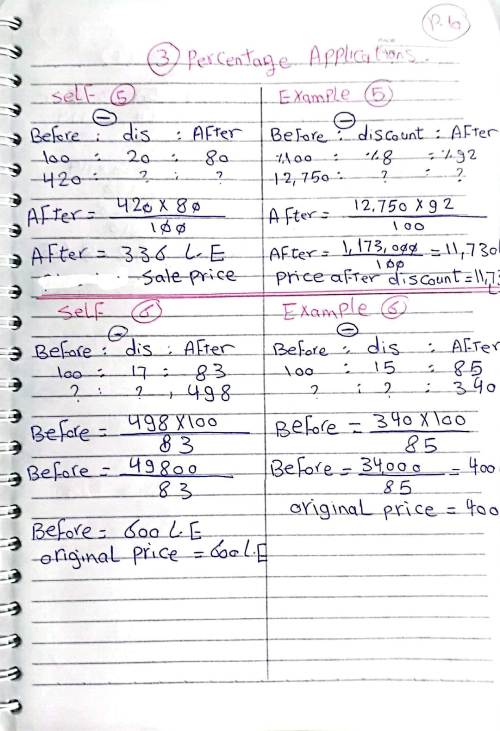 P.6
③ Percentage Applications.
Self ⑤
⊖
Before : dis : After
100 : 20 : 80
420 : ? : ?
After = 420 × 80 / 100
After = 336 L.E
Sale price
Example ⑤
⊖
Before : discount : After
%100 : %8 = %92
12,750 : ? : ?
After = 12,750 × 92 / 100
After = 1,173,000 / 100 = 11,730
Price after discount = 11,73
Self ⑥
⊖
Before : dis : After
100 : 17 : 83
? : ? , 498
Before = 498 × 100 / 83
Before = 49800 / 83
Before = 600 L.E
original price = 600 L.E
Example ⑥
⊖
Before : dis : After
100 : 15 : 85
? : ? : 340
Before = 340 × 100 / 85
Before = 34,000 / 85 = 400
original price = 400